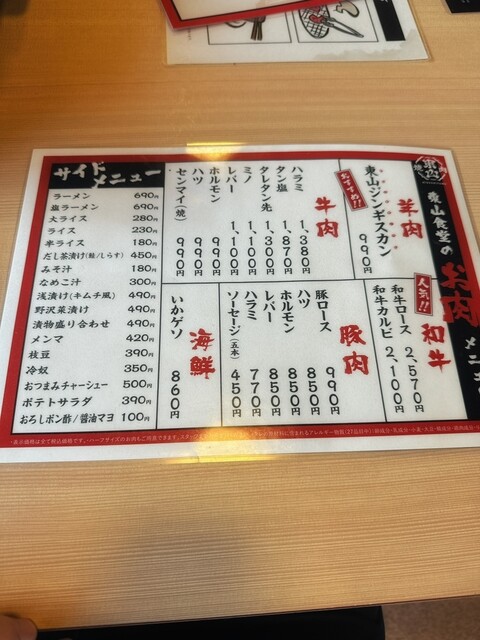 焼肉 東山
東山食堂の
お肉
メニュー
羊肉
おすすめ!!
東山ジンギスカン 990円
人気!!
和牛
和牛ロース 2,570円
和牛カルビ 2,100円
牛肉
ハラミ 1,380円
タン塩 1,870円
タレタン先 1,300円
ミノ 1,100円
レバー 1,100円
ホルモン 990円
ハツ 990円
センマイ(焼) 990円
豚肉
豚ロース 990円
ハツ 850円
ホルモン 850円
レバー 850円
ハラミ 770円
ソーセージ(五本) 450円
海鮮
いかゲソ 860円
サイドメニュー
ラーメン 690円
塩ラーメン 690円
大ライス 280円
ライス 230円
半ライス 180円
だし茶漬け(鮭/しらす) 450円
みそ汁 180円
なめこ汁 300円
浅漬け(キムチ風) 490円
野沢菜漬け 490円
漬物盛り合わせ 490円
メンマ 420円
枝豆 390円
冷奴 350円
おつまみチャーシュー 500円
ポテトサラダ 390円
おろしポン酢/醤油マヨ 100円
・表示価格は全て税込価格です。・ハーフサイズのお肉もご用意できます。